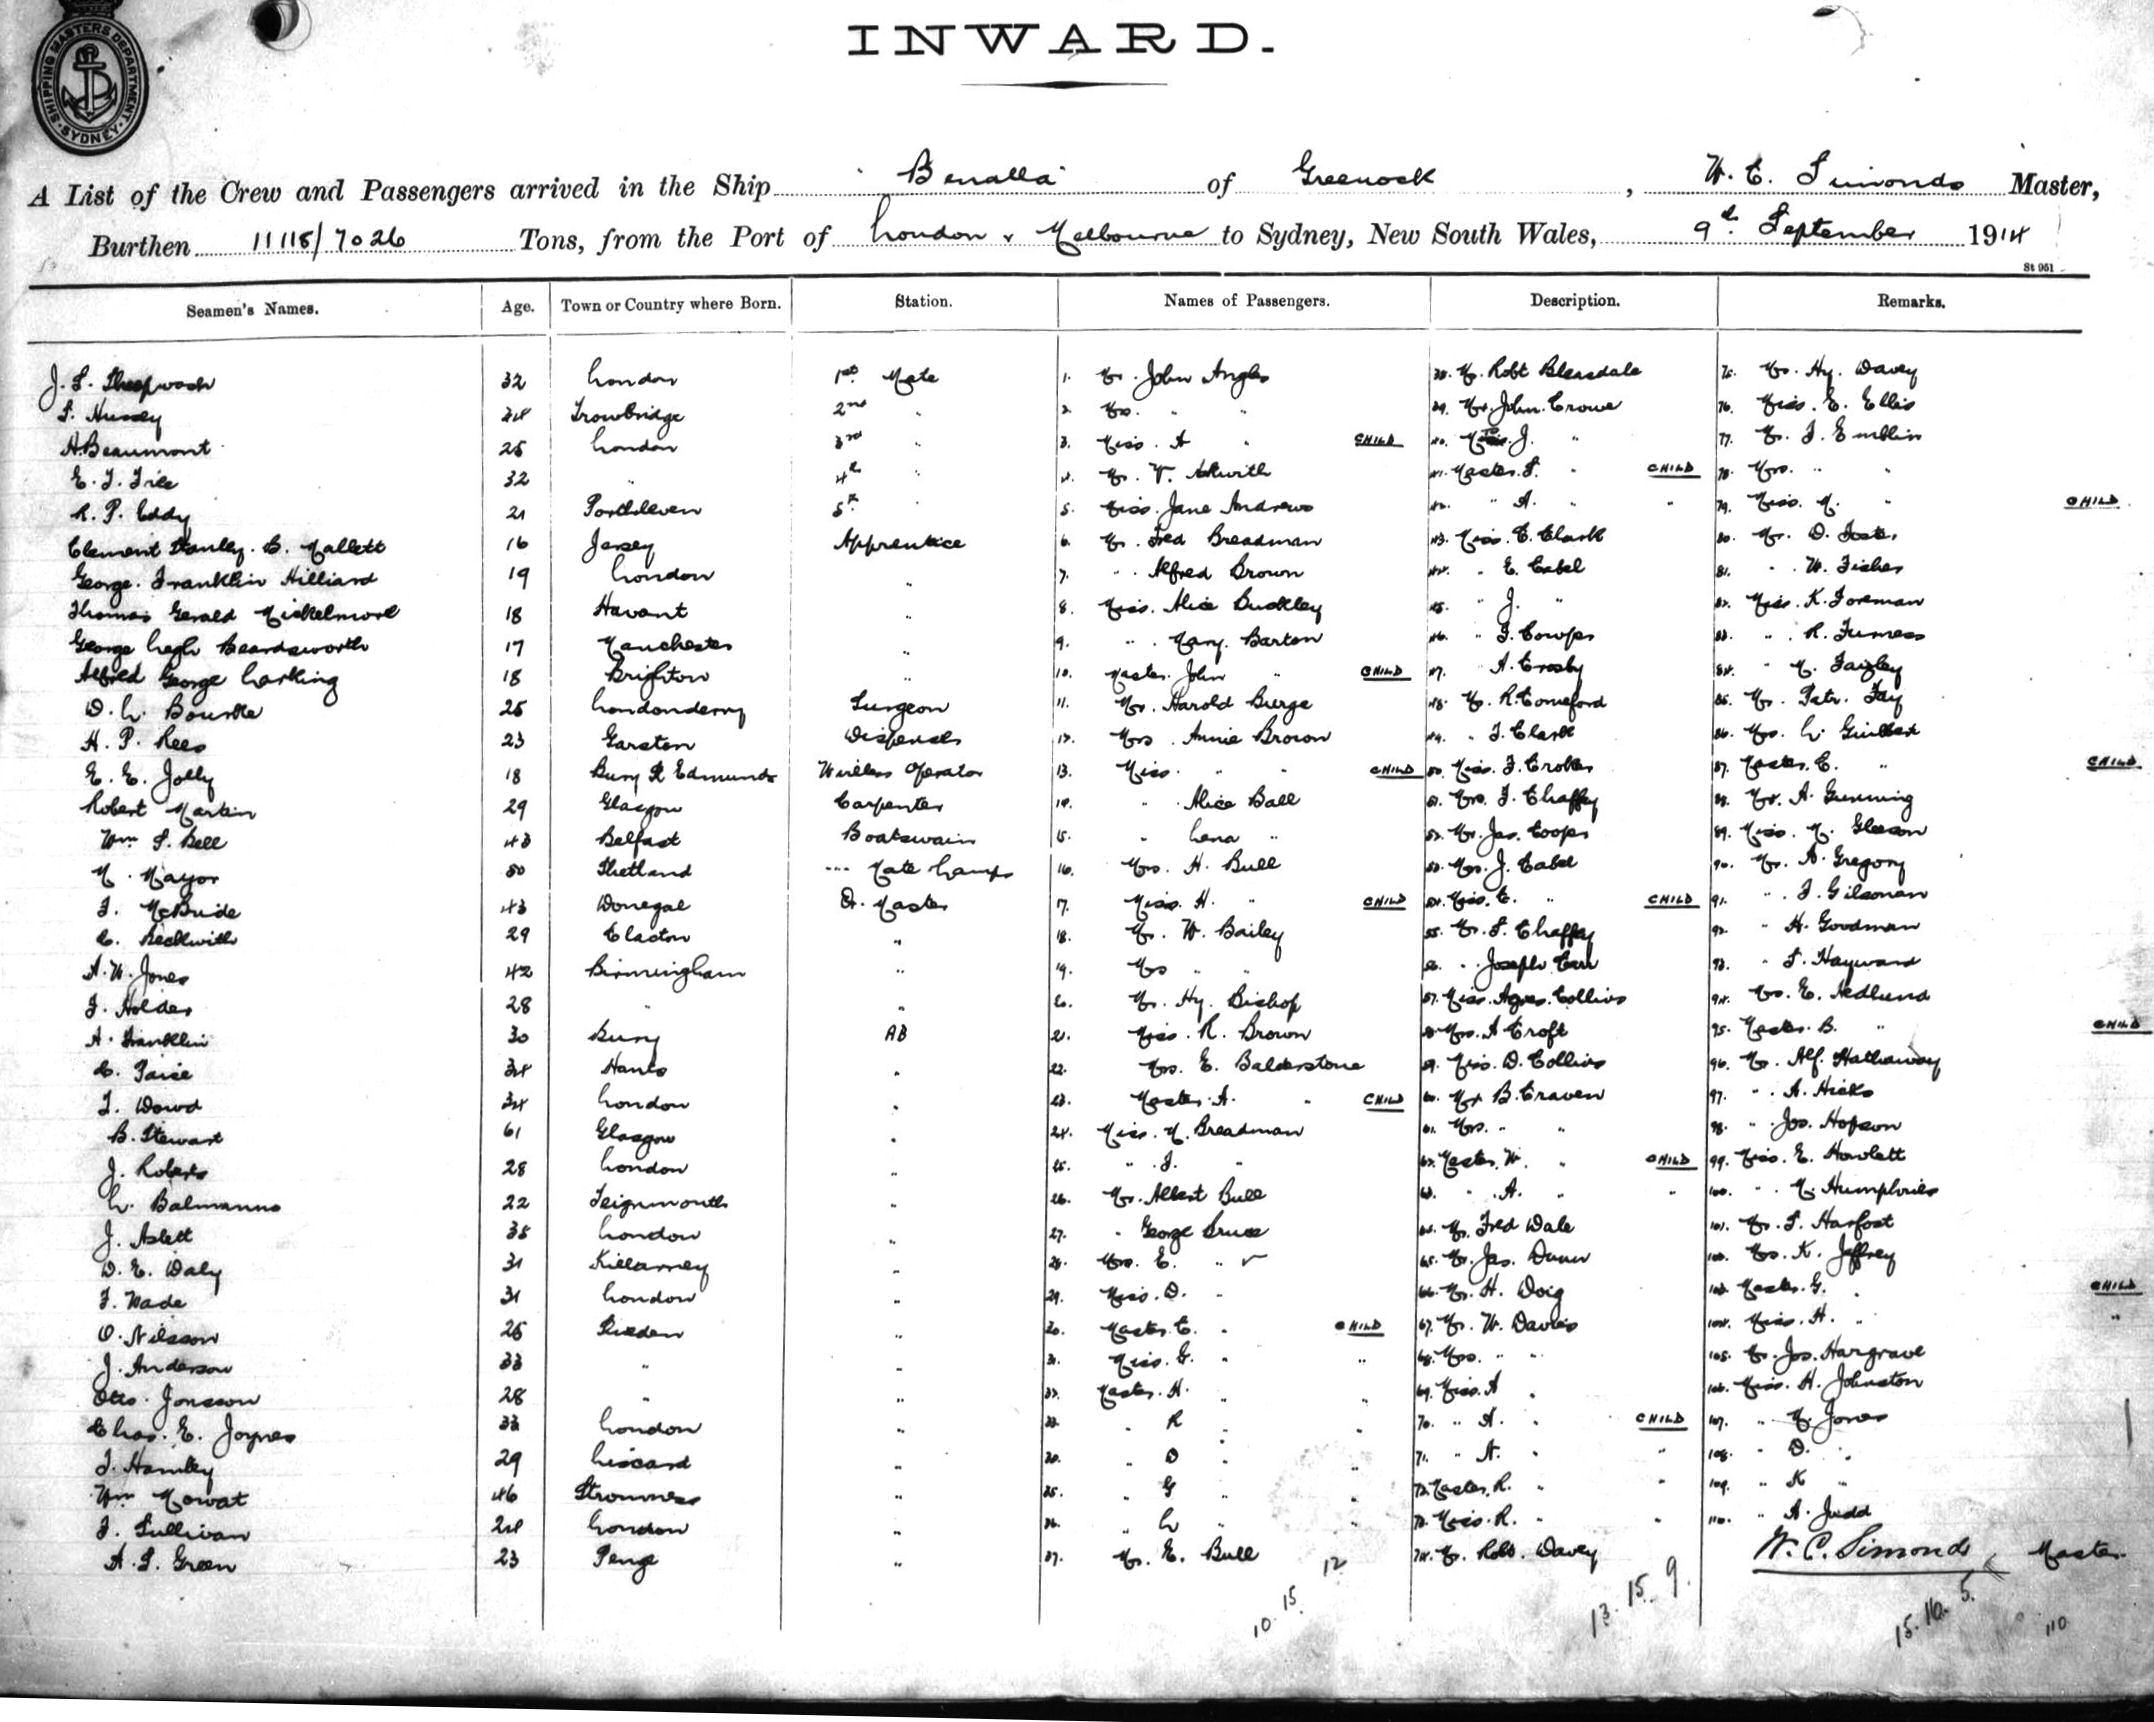 SHIPPING MASTERS DEPARTMENT · SYDNEY ·
INWARD.
A List of the Crew and Passengers arrived in the Ship "Benalla" of Greenock, W. C. Simonds Master,
Burthen 11118/7026 Tons, from the Port of London & Melbourne to Sydney, New South Wales, 9th September 1914
St 951
Seamen's Names. Age. Town or Country where Born. Station. Names of Passengers. Description. Remarks.
J. S. Sheepwash 32 London 1st Mate 1. Mr. John Angles 38. Mr. Robt Bleasdale 75. Mrs. Hy. Davey
S. Hussey 24 Trowbridge 2nd " 2. Mrs. " " 39. Mr. John Crowe 76. Miss. E. Ellis
H. Beaumont 25 London 3rd " 3. Miss. A " CHILD 40. J. " 77. Mr. J. Emblin
E. J. 32 " 4th " 4. Mr. W. Askwith 41. Master. S. " CHILD 78. Mrs. " "
R. P. Eddy 21 Porthleven 5th " 5. Miss. Jane Andrews 42. " A. " " 79. Miss. M. " CHILD
Clement Stanley. B. Mallett 16 Jersey Apprentice 6. Mr. Fred Breadman 43. Miss. E. Clark 80. Mr. D. Foster
George. Franklin Hilliard 19 London " 7. " Alfred Brown 44. " E. Cabel 81. " W. Fisher
Thomas Gerald Mickelmore 18 Havant " 8. Miss. Alice Buckley 45. " J. " 82. Miss. K. Foreman
George Leigh Beardsworth 17 Manchester " 9. " Mary. Barton 46. " F. Cowper 83. " R. Furness
Alfred George Larking 18 Brighton " 10. Master. John " CHILD 47. " A. Crosby 84. " M. Faigley
D. L. Bourke 25 Londonderry Surgeon 11. Mr. Harold Burge 48. Mr. R. Comeford 85. Mr. Patr. Fay
H. P. Rees 23 Garston Dispenser 12. Mrs. Annie Brown 49. " J. Clark 86. Mrs. L. Guilbert
E. E. Jolly 18 Bury St Edmunds Wireless Operator 13. Miss. " " CHILD 50. Miss. F. Croker 87. Master. C. " CHILD
Robert Martin 29 Glasgow Carpenter 14. " Alice Ball 51. Mrs. F. Chaffey 88. Mr. A. Gunning
Wm S. Bell 43 Belfast Boatswain 15. " Lena " 52. Mr. Jas. Cooper 89. Miss. M. Gleeson
M. Mayor 50 Shetland Mate Lamps 16. Mrs. H. Bull 53. Mrs. J. Cabel 90. Mr. A. Gregory
J. McBride 43 Donegal Qr. Master 17. Miss. H. " CHILD 54. Miss. E. " CHILD 91. " J. Gilsonan
C. Beckwith 29 Clacton " 18. Mr. W. Bailey 55. Mr. S. Chaffey 92. " H. Goodman
A. W. Jones 42 Birmingham " 19. Mrs " " 56. " Joseph Carr 93. " S. Hayward
J. Holder 28 " " 20. Mr. Hy. Bishop 57. Miss. Agnes. Collins 94. Mrs. E. Hedlund
A. Franklin 30 Bury AB 21. Miss. R. Brown 58. Mrs. A Croft 95. Master. B. " CHILD
C. Paice 34 Hants " 22. Mrs. E. Balderstone 59. Miss. D. Collins 96. Mr. Alf. Hathaway
J. Dowd 34 London " 23. Master. A. " CHILD 60. Mr. B. Craven 97. " A. Hicks
B. Stewart 61 Glasgow " 24. Miss. M. Breadman 61. Mrs. " " 98. " Jos. Hopson
J. Roberts 28 London " 25. " J. " 62. Master. W. " CHILD 99. Miss. E. Howlett
L. Balmanno 22 Teignmouth " 26. Mr. Albert Bull 63. " A. " " 100. " M. Humphries
J. Aslett 35 London " 27. " George Bruce 64. Mr. Fred Dale 101. Mr. S. Harfost
D. E. Daly 31 Killarney " 28. Mrs. E. " 65. Mr. Jas. Dunn 102. Mrs. K. Jeffrey
F. Wade 31 London " 29. Miss. D. " 66. Mr. H. Doig 103. Master. G. " CHILD
O. Nilsson 25 Sweden " 30. Master. C. " CHILD 67. Mr. W. Davies 104. Miss. H. " "
J. Anderson 33 " " 31. Miss. G. " " 68. Mrs. " " 105. Mr. Jos. Hargrave
Otto. Jonsson 28 " " 32. Master. H. " " 69. Miss. A " 106. Miss. H. Johnston
Chas. E. Joynes 33 London " 33. " R " " 70. " A. " CHILD 107. " M. Jones
J. Hamley 29 Liscard " 34. " D " " 71. " N. " " 108. " D. "
Wm Mowat 46 Stromness " 35. " G " " 72. Master. R. " " 109. " K "
J. Sullivan 24 London " 36. " L " " 73. Miss. R. " " 110. " A. Judd
A. S. Green 23 Penge " 37. Mr. E. Bull 74. Mr. Robt. Davey W. C. Simonds Master
10. 15. 12 13. 15. 9. 15. 16. 5. 110